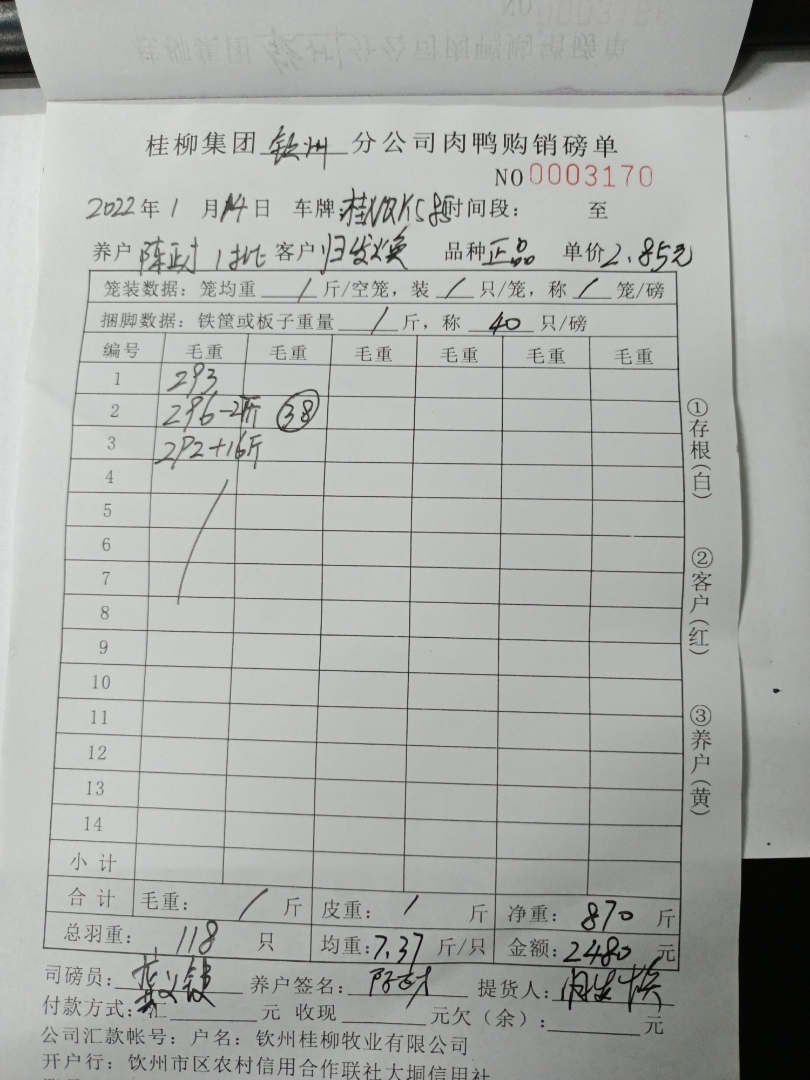 桂柳集团 钦州 分公司肉鸭购销磅单
NO 0003170
2022年1月14日 车牌: 时间段: 至
养户 1批 客户 品种 正品 单价 2.85元
笼装数据:笼均重 / 斤/空笼,装 / 只/笼,称 / 笼/磅
捆脚数据:铁筐或板子重量 / 斤,称 40 只/磅
编号 毛重 毛重 毛重 毛重 毛重 毛重
1 293
2 296-2斤 38
3 292+16斤
4
5
6
7
8
9
10
11
12
13
14
小计
合计 毛重: / 斤 皮重: / 斤 净重: 870 斤
总羽重: 118 只 均重: 7.37 斤/只 金额: 2480 元
司磅员: 养户签名: 提货人:
付款方式:汇 元 收现 元欠(余): 元
公司汇款帐号:户名:钦州桂柳牧业有限公司
开户行:钦州市区农村信用合作联社大垌信用社
①存根(白)
②客户(红)
③养户(黄)